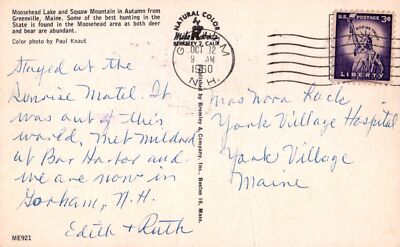 Moosehead Lake and Squaw Mountain in Autumn from
Greenville, Maine. Some of the best hunting in the
State is found in the Moosehead area as both deer
and bear are abundant.
Color photo by Paul Knaut
NATURAL COLOR
Mike Roberts
BERKELEY 2, CALIF.
OCT 12
9 AM
1960
N.H.
U.S. POSTAGE 3¢
LIBERTY
Stayed at the
Sunrise Motel. It
was out of this
world. Met Mildred
at Bar Harbor and
we are now in
Gorham, N.H.
Edith & Ruth
Distributed by Bromley & Company, Inc. Boston 10, Mass.
Mrs Nora
York Village Hospital
York Village
Maine
ME921